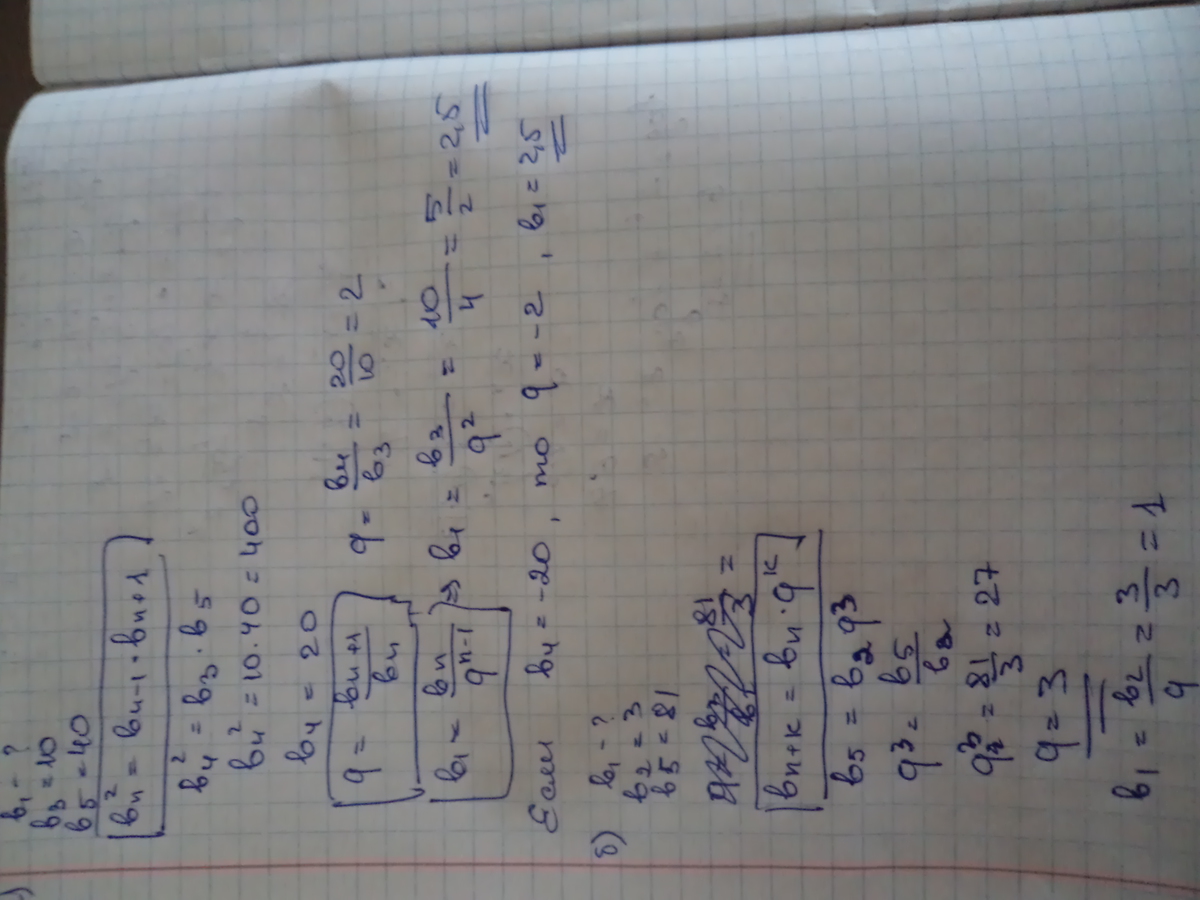 )
b₁ - ?
b₃ = 10
b₅ = 40
bₙ² = bₙ₋₁ · bₙ₊₁
b₄² = b₃ · b₅
b₄² = 10 · 40 = 400
b₄ = 20
q = bₙ₊₁/bₙ q = b₄/b₃ = 20/10 = 2
b₁ = bₙ/qⁿ⁻¹ ⇒ b₁ = b₃/q² = 10/4 = 5/2 = 2,5
Если b₄ = -20, то q = -2, b₁ = 2,5
б) b₁ - ?
b₂ = 3
b₅ = 81
bₙ₊ₖ = bₙ · qᵏ
b₅ = b₂ q³
q³ = b₅/b₂
q³ = 81/3 = 27
q = 3
b₁ = b₂/q = 3/3 = 1